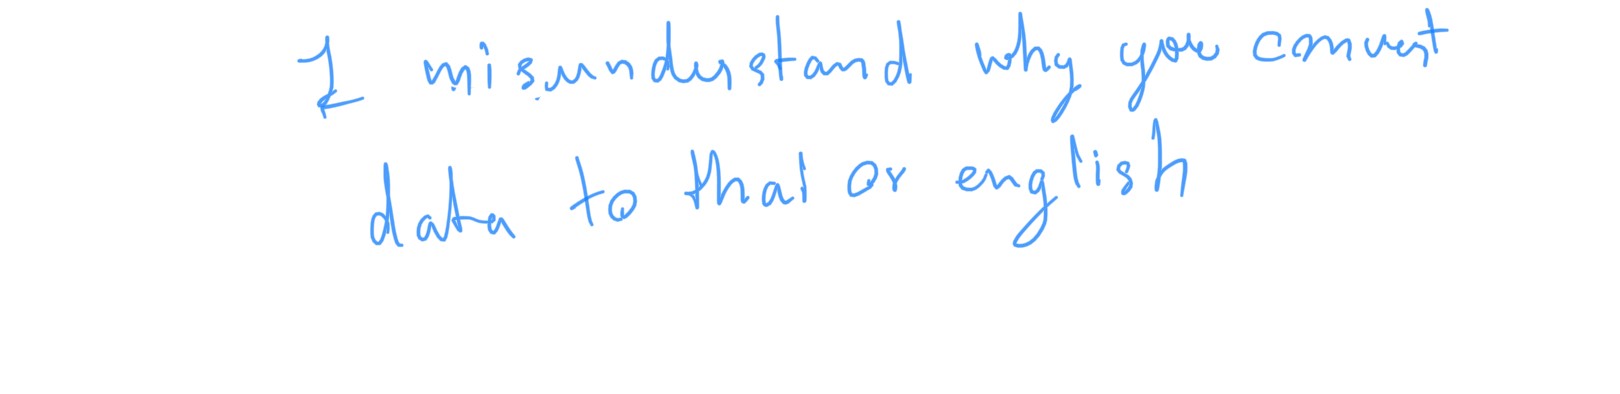 I misunderstand why you convert
data to that or english